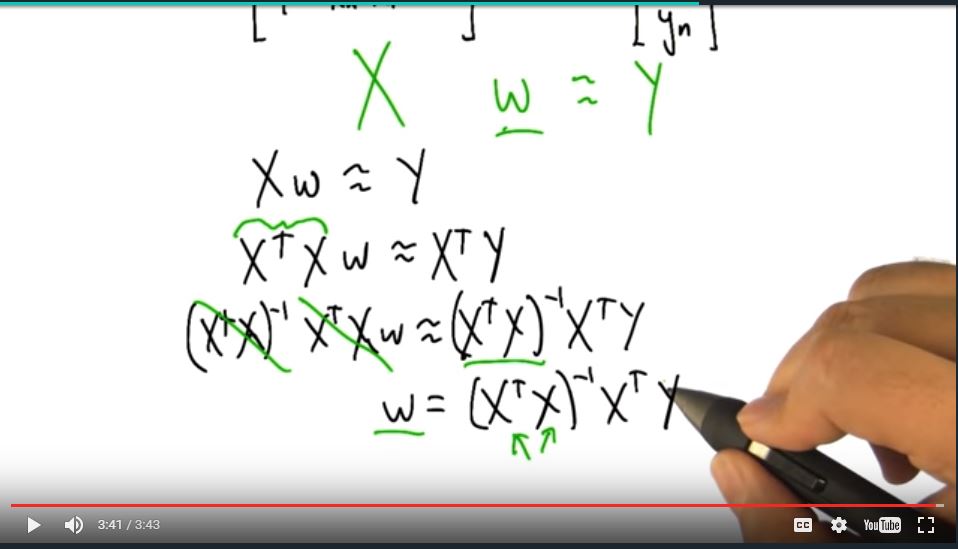 [ ] [ yn ]
X w ≈ Y
Xw ≈ Y
XᵀX w ≈ XᵀY
(XᵀX)⁻¹ XᵀXw ≈ (XᵀX)⁻¹XᵀY
w = (XᵀX)⁻¹XᵀY
3:41 / 3:43 CC YouTube